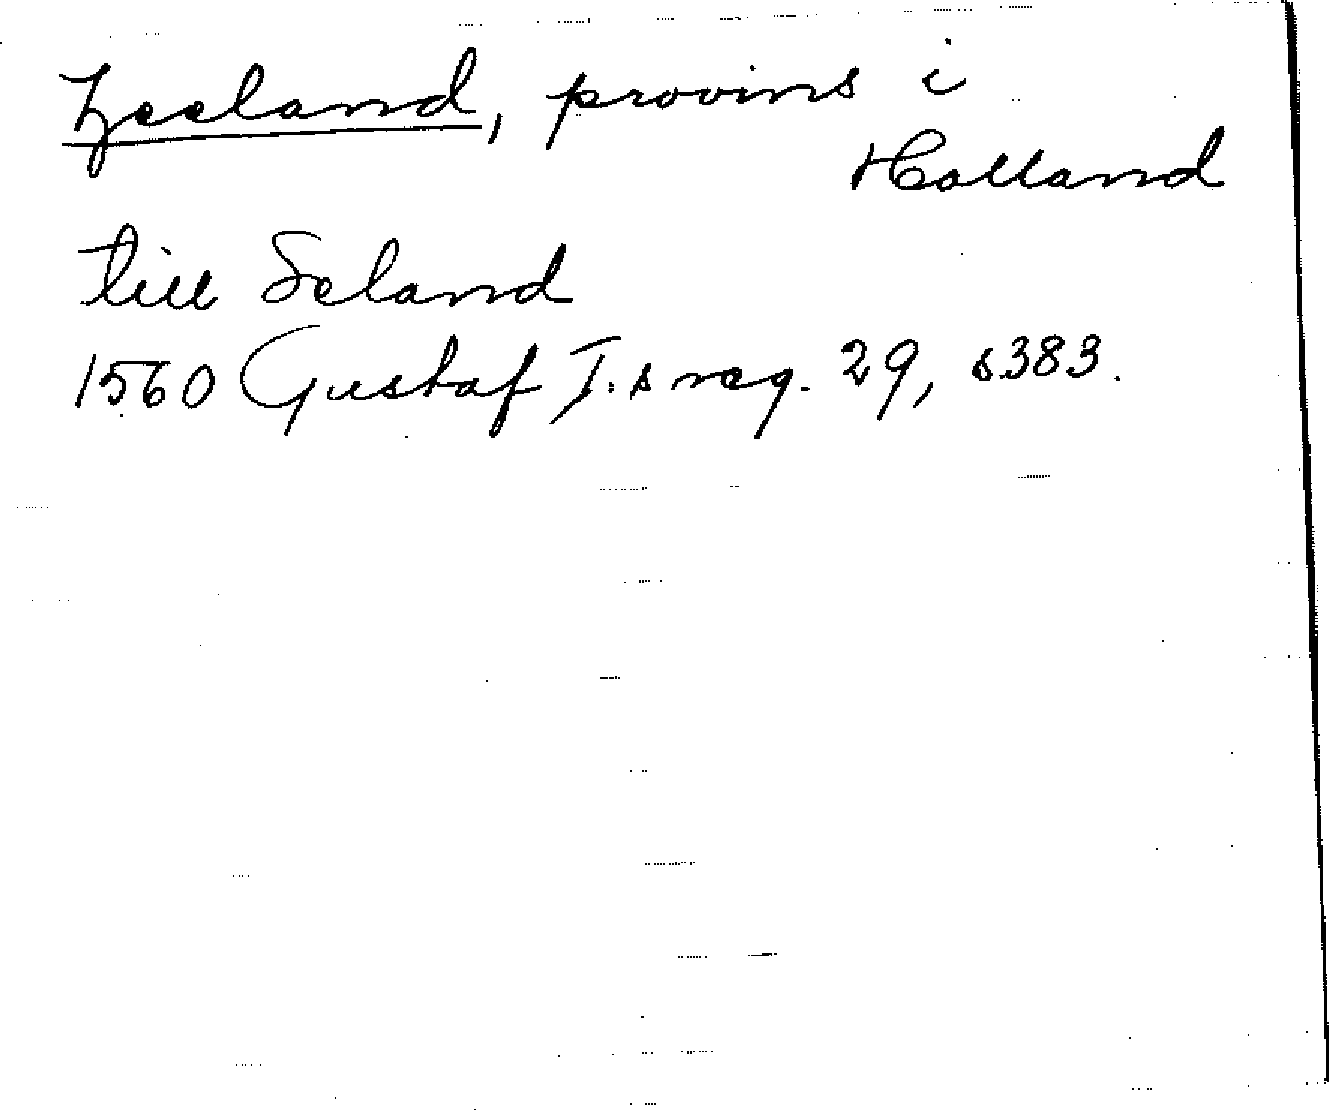 Zeeland, provins i
Holland
till Seland
1560 Gustaf I:s reg. 29, s383.